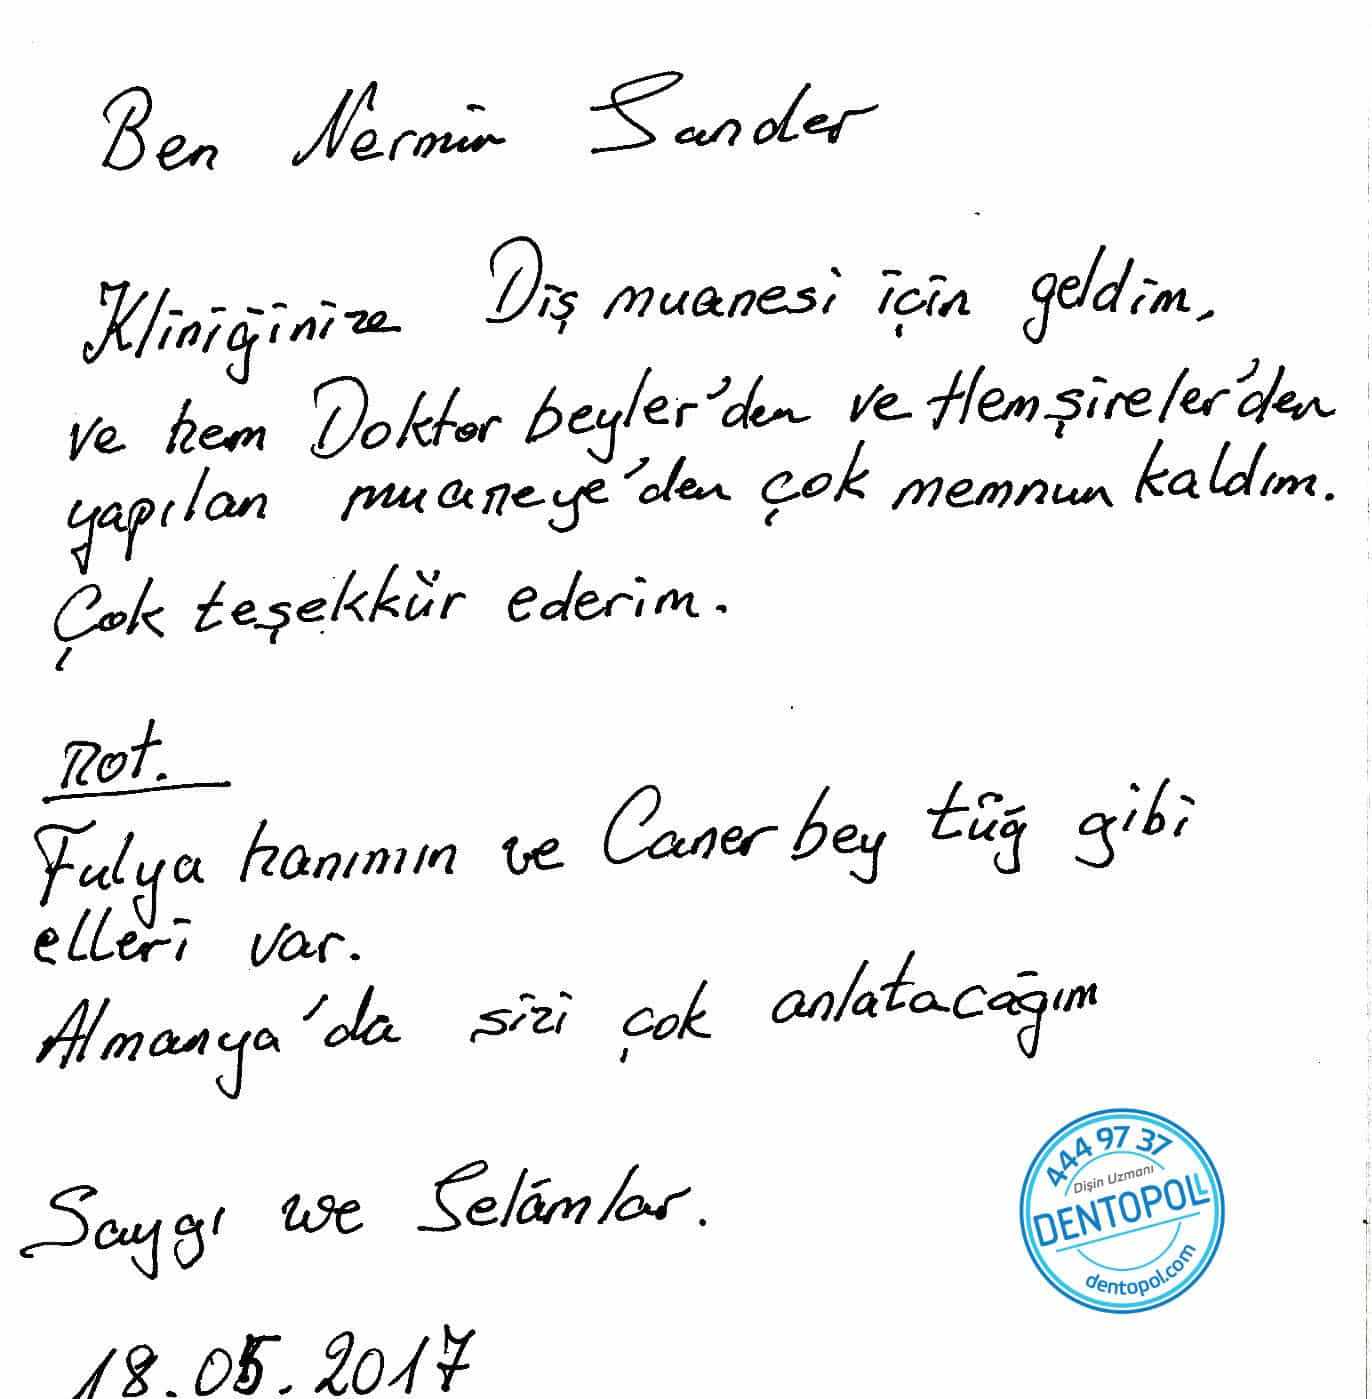 Ben Nermin Sander
Kliniğinize Diş muanesi için geldim,
ve hem Doktor beyler'den ve Hemşireler'den
yapılan muaneye'den çok memnun kaldım.
Çok teşekkür ederim.
not.
Fulya hanımın ve Caner bey tüğ gibi
elleri var.
Almanya'da sizi çok anlatacağım
Saygı we Selâmlar.
18.05.2017
444 97 37
Dişin Uzmanı
DENTOPOLL
dentopol.com